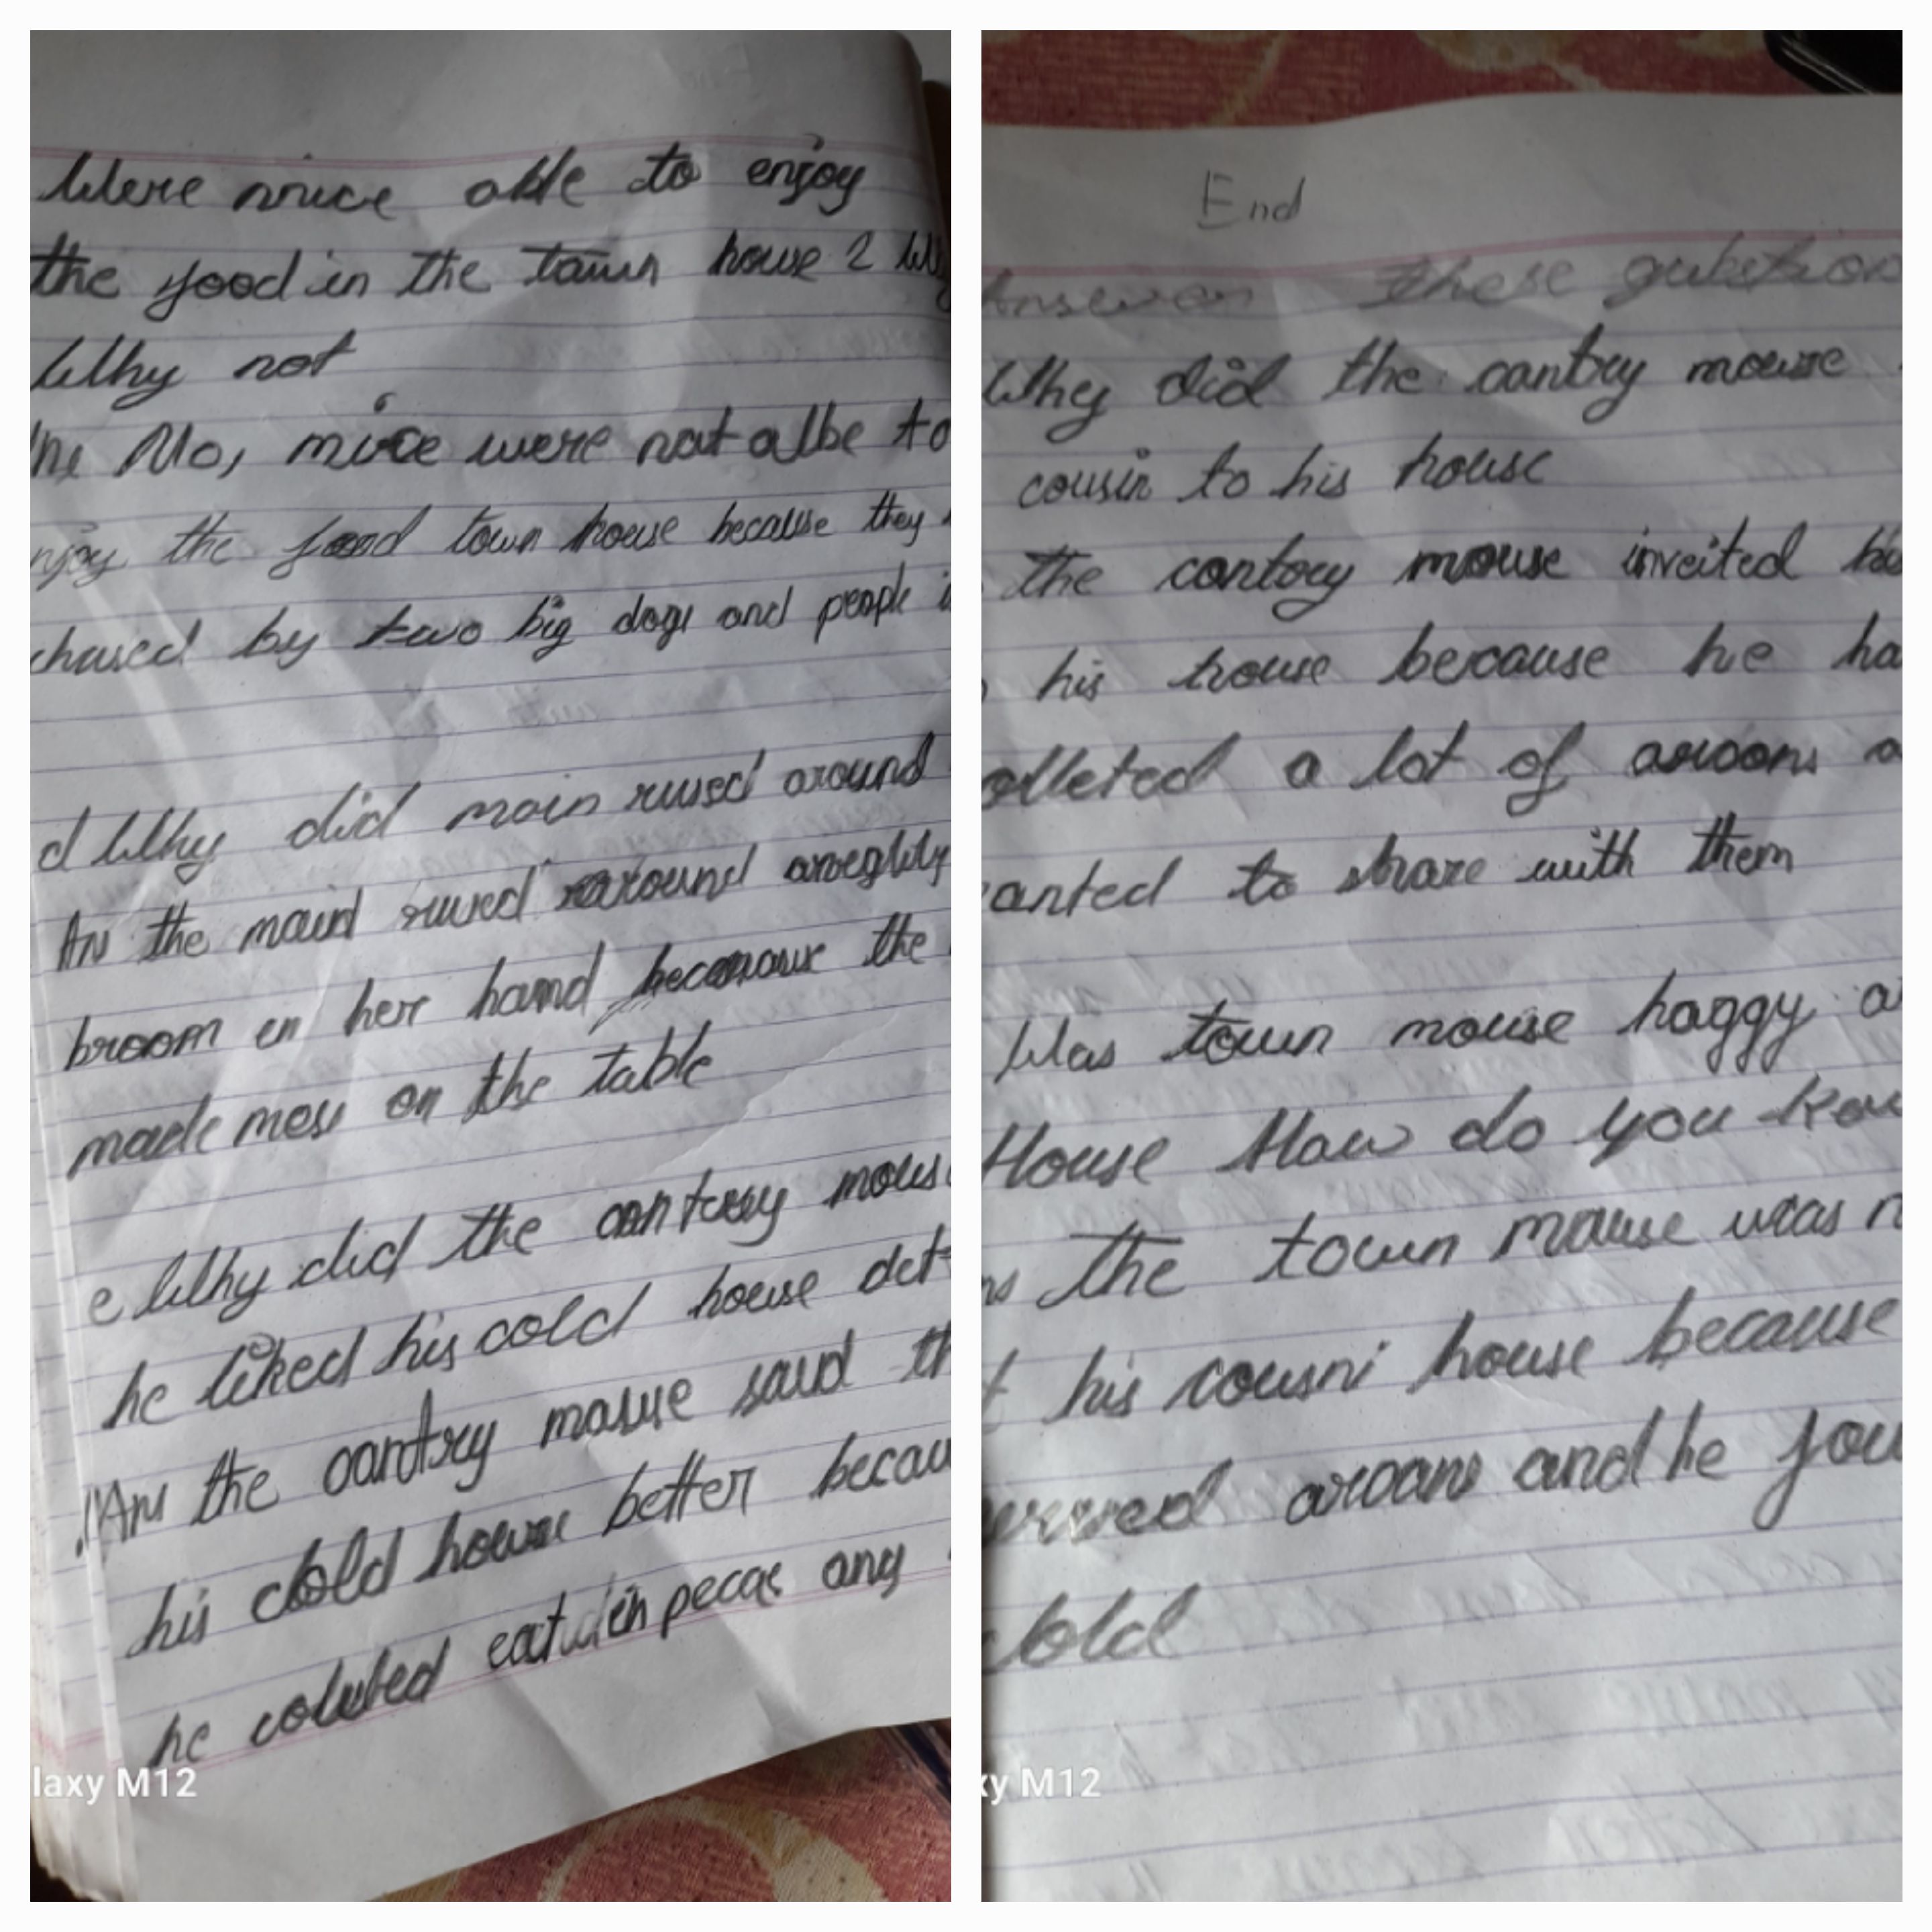 Were mice able to enjoy
the food in the town house ?
Why not
No, mice were not albe to
enjoy the food town house because they
chased by two big dogs and people
d Why did main rused around
An the maid rused around
broom in her hand the
made mess on the table
e Why did the contry mouse
he liked his cold house
Ans the contry mouse said
his cold house better
he eat in pecae any
laxy M12
End
Answer these
Why did the contry mouse
cousin to his house
the contory mouse inveited his
his house because he ha
olleted a lot of aroons a
anted to share with them
Was town mouse haggy a
House How do you
the town mouse was n
his cousni house because
erved aroans and he fou
cold
xy M12